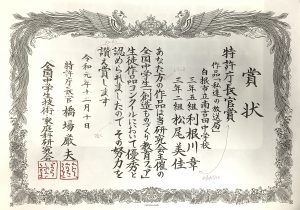 賞状
特許庁長官賞
作品「私達の放送局」
白根市立南 中学校
三年五組 利根川 章
三年二組 松尾 美佳
あなた方の作品は当研究会主催の
全国中学生「創造ものづくり教育フェア」
生徒作品コンクールにおいて優秀と
認められましたのでその努力を
讃え賞します
令和元年十二月十日
特許庁長官
全国中学生技術・家庭科研究会